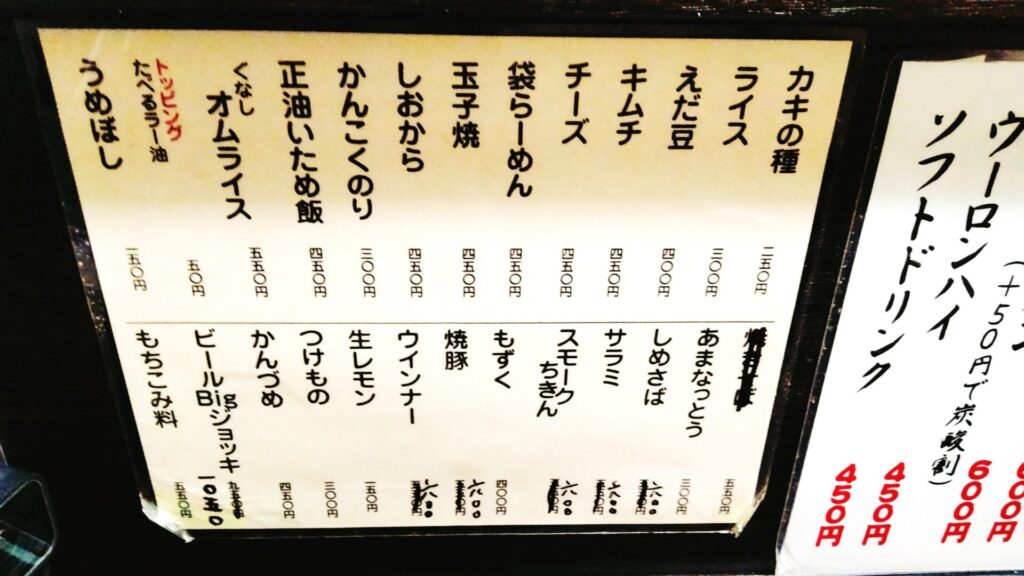 ウーロンハイ 600円
(+50円で炭酸割)
ソフトドリンク 450円
450円
カキの種
ライス 三〇〇円
えだ豆 四〇〇円
キムチ 四五〇円
チーズ 四五〇円
袋らーめん 四五〇円
玉子焼 四五〇円
しおから 四五〇円
かんこくのり 三〇〇円
正油いため飯 四五〇円
くなし
オムライス 五五〇円
トッピング
たべるラー油 五〇円
うめぼし 一五〇円
五五〇円
あまなっとう 三〇〇円
しめさば 六〇〇
サラミ 六〇〇
スモーク
ちきん 六〇〇
もずく 四〇〇円
焼豚 六〇〇
ウインナー 六〇〇
生レモン 一五〇円
つけもの 三〇〇円
かんづめ 四五〇円
ビール
Bigジョッキ 一〇五〇
もちこみ料 五五〇円